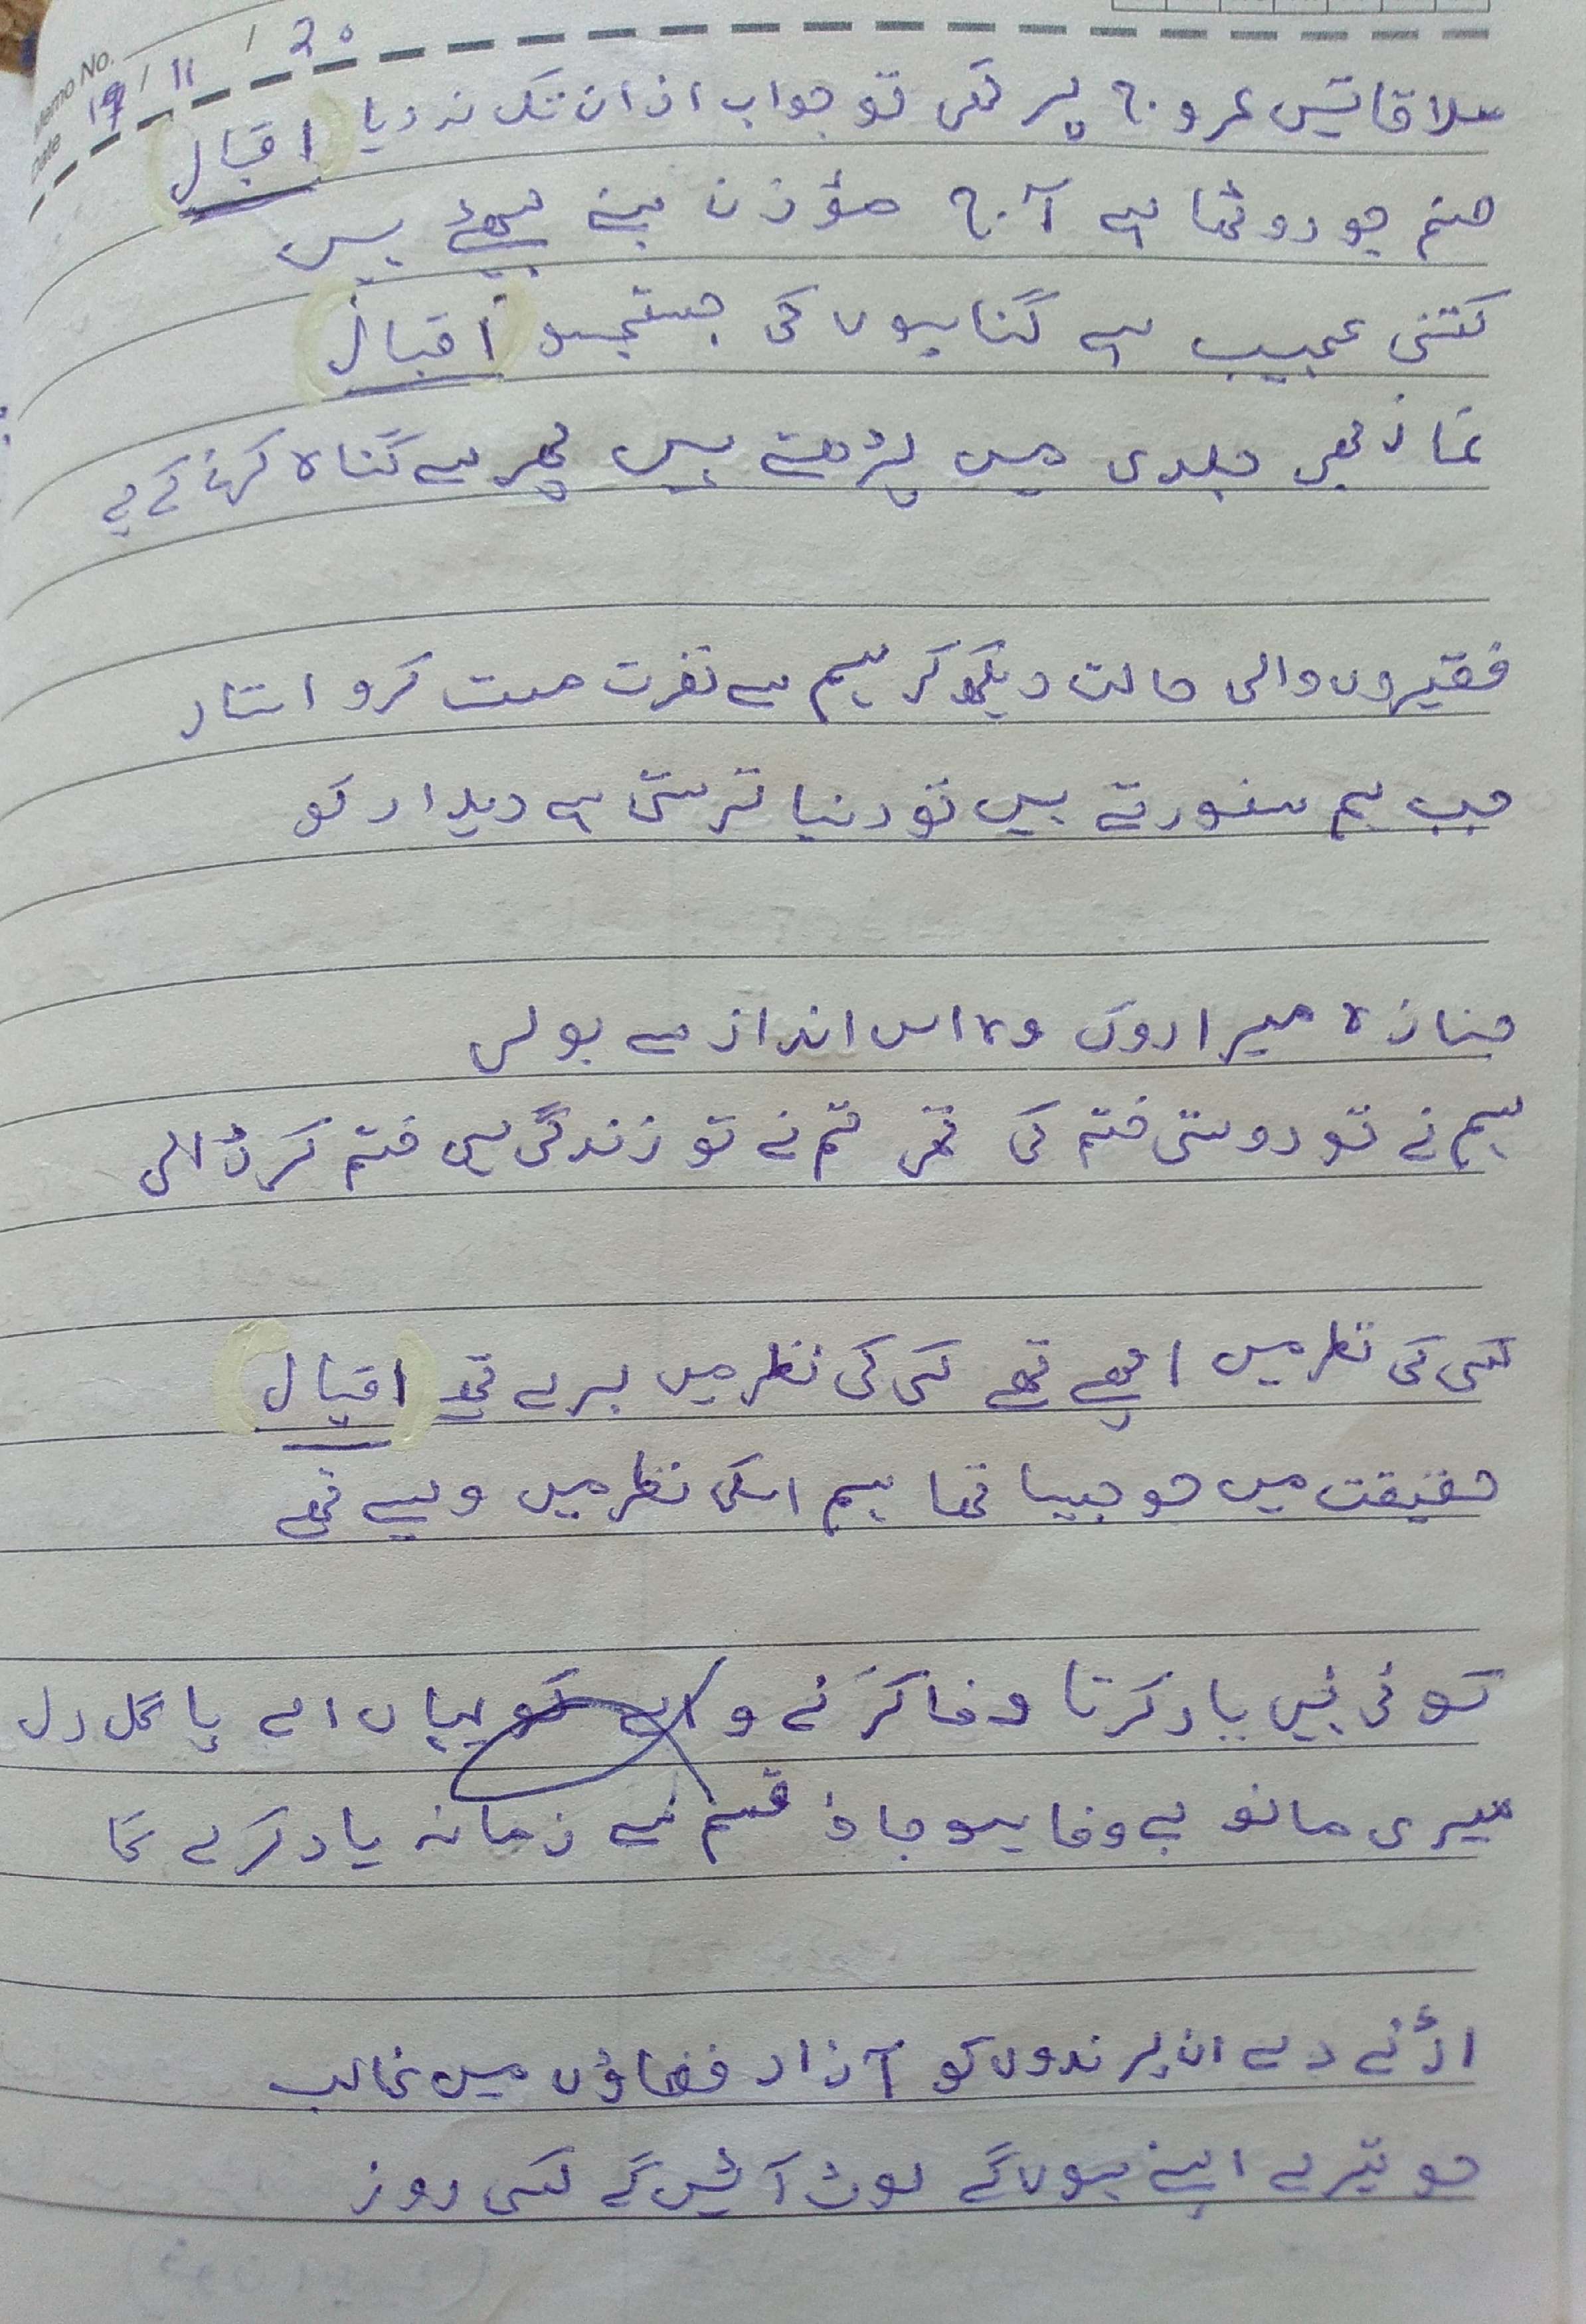 Memo No.
Date 19 / 11 / 20
ملاقاتیں عروج پر تھی تو جواب اذان تک نہ دیا اقبال
صنم جو روٹھا ہے آج مؤذن بنے بیٹھے ہیں
کتنی عجیب ہے گناہوں کی جستجو اقبال
نماز بھی جلدی میں پڑھتے ہیں پھر سے گناہ کرنے کے لیے
فقیروں والی حالت دیکھ کر ہم سے نفرت مت کرو استاد
جب ہم سنورتے ہیں تو دنیا ترستی ہے دیدار کو
جنازہ میرا روک وہ اس انداز سے بولی
ہم نے تو دوستی ختم کی تھی تم نے تو زندگی ہی ختم کر ڈالی
کسی کی نظر میں اچھے تھے کسی کی نظر میں برے تھے اقبال
حقیقت میں جو جیسا تھا ہم اسکی نظر میں ویسے تھے
کوئی نہیں یاد کرتا وفا کرنے والے کو یہاں اے پاگل دل
میری مانو بے وفا ہو جاؤ قسم سے زمانہ یاد کرے گا
اڑنے دے ان پرندوں کو آزاد فضاؤں میں غالب
جو تیرے اپنے ہوں گے لوٹ آئیں گے کسی روز